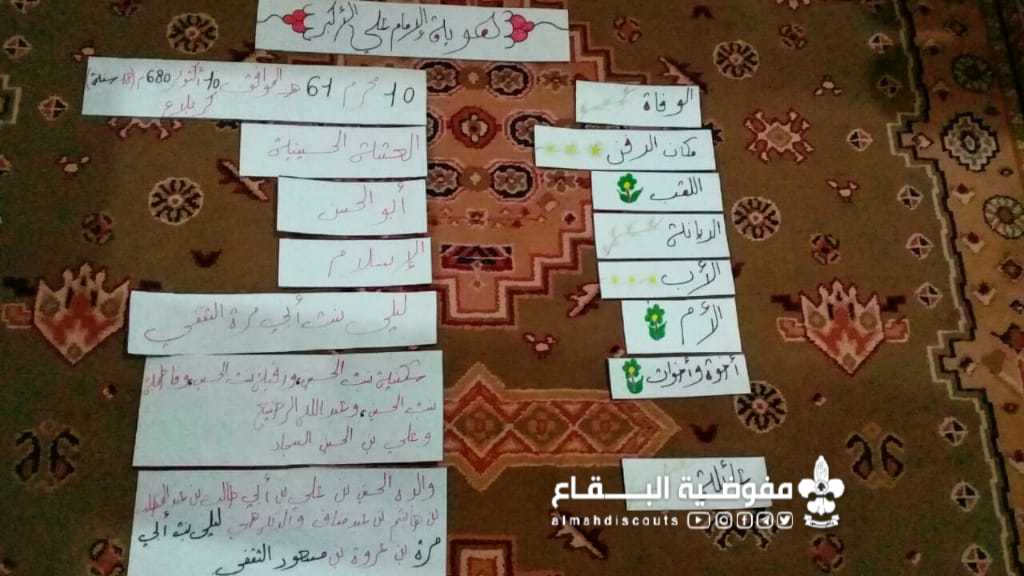 كهوبات الإمام علي الأكبر
الوفاة
10 محرم 61 هـ الموافق 10 أكتوبر 680 م (18 سنة)
كربلاء
مكان الدفن
العتبة الحسينية
اللقب
أبو الحسن
الديانة
الإسلام
الأب
الأم
ليلى بنت أبي مرة الثقفي
أخوة وأخوات
سكينة بنت الحسين، ورقية بنت الحسين، وفاطمة
بنت الحسين، وعبد الله الرضيع
وعلي بن الحسين السجاد
عائلة
والده الحسين بن علي بن أبي طالب بن عبد المطلب
بن هاشم بن عبد مناف والدته هي ليلى بنت أبي
مرة بن عروة بن مسعود الثقفي
مفوضية البقاع
almahdiscouts